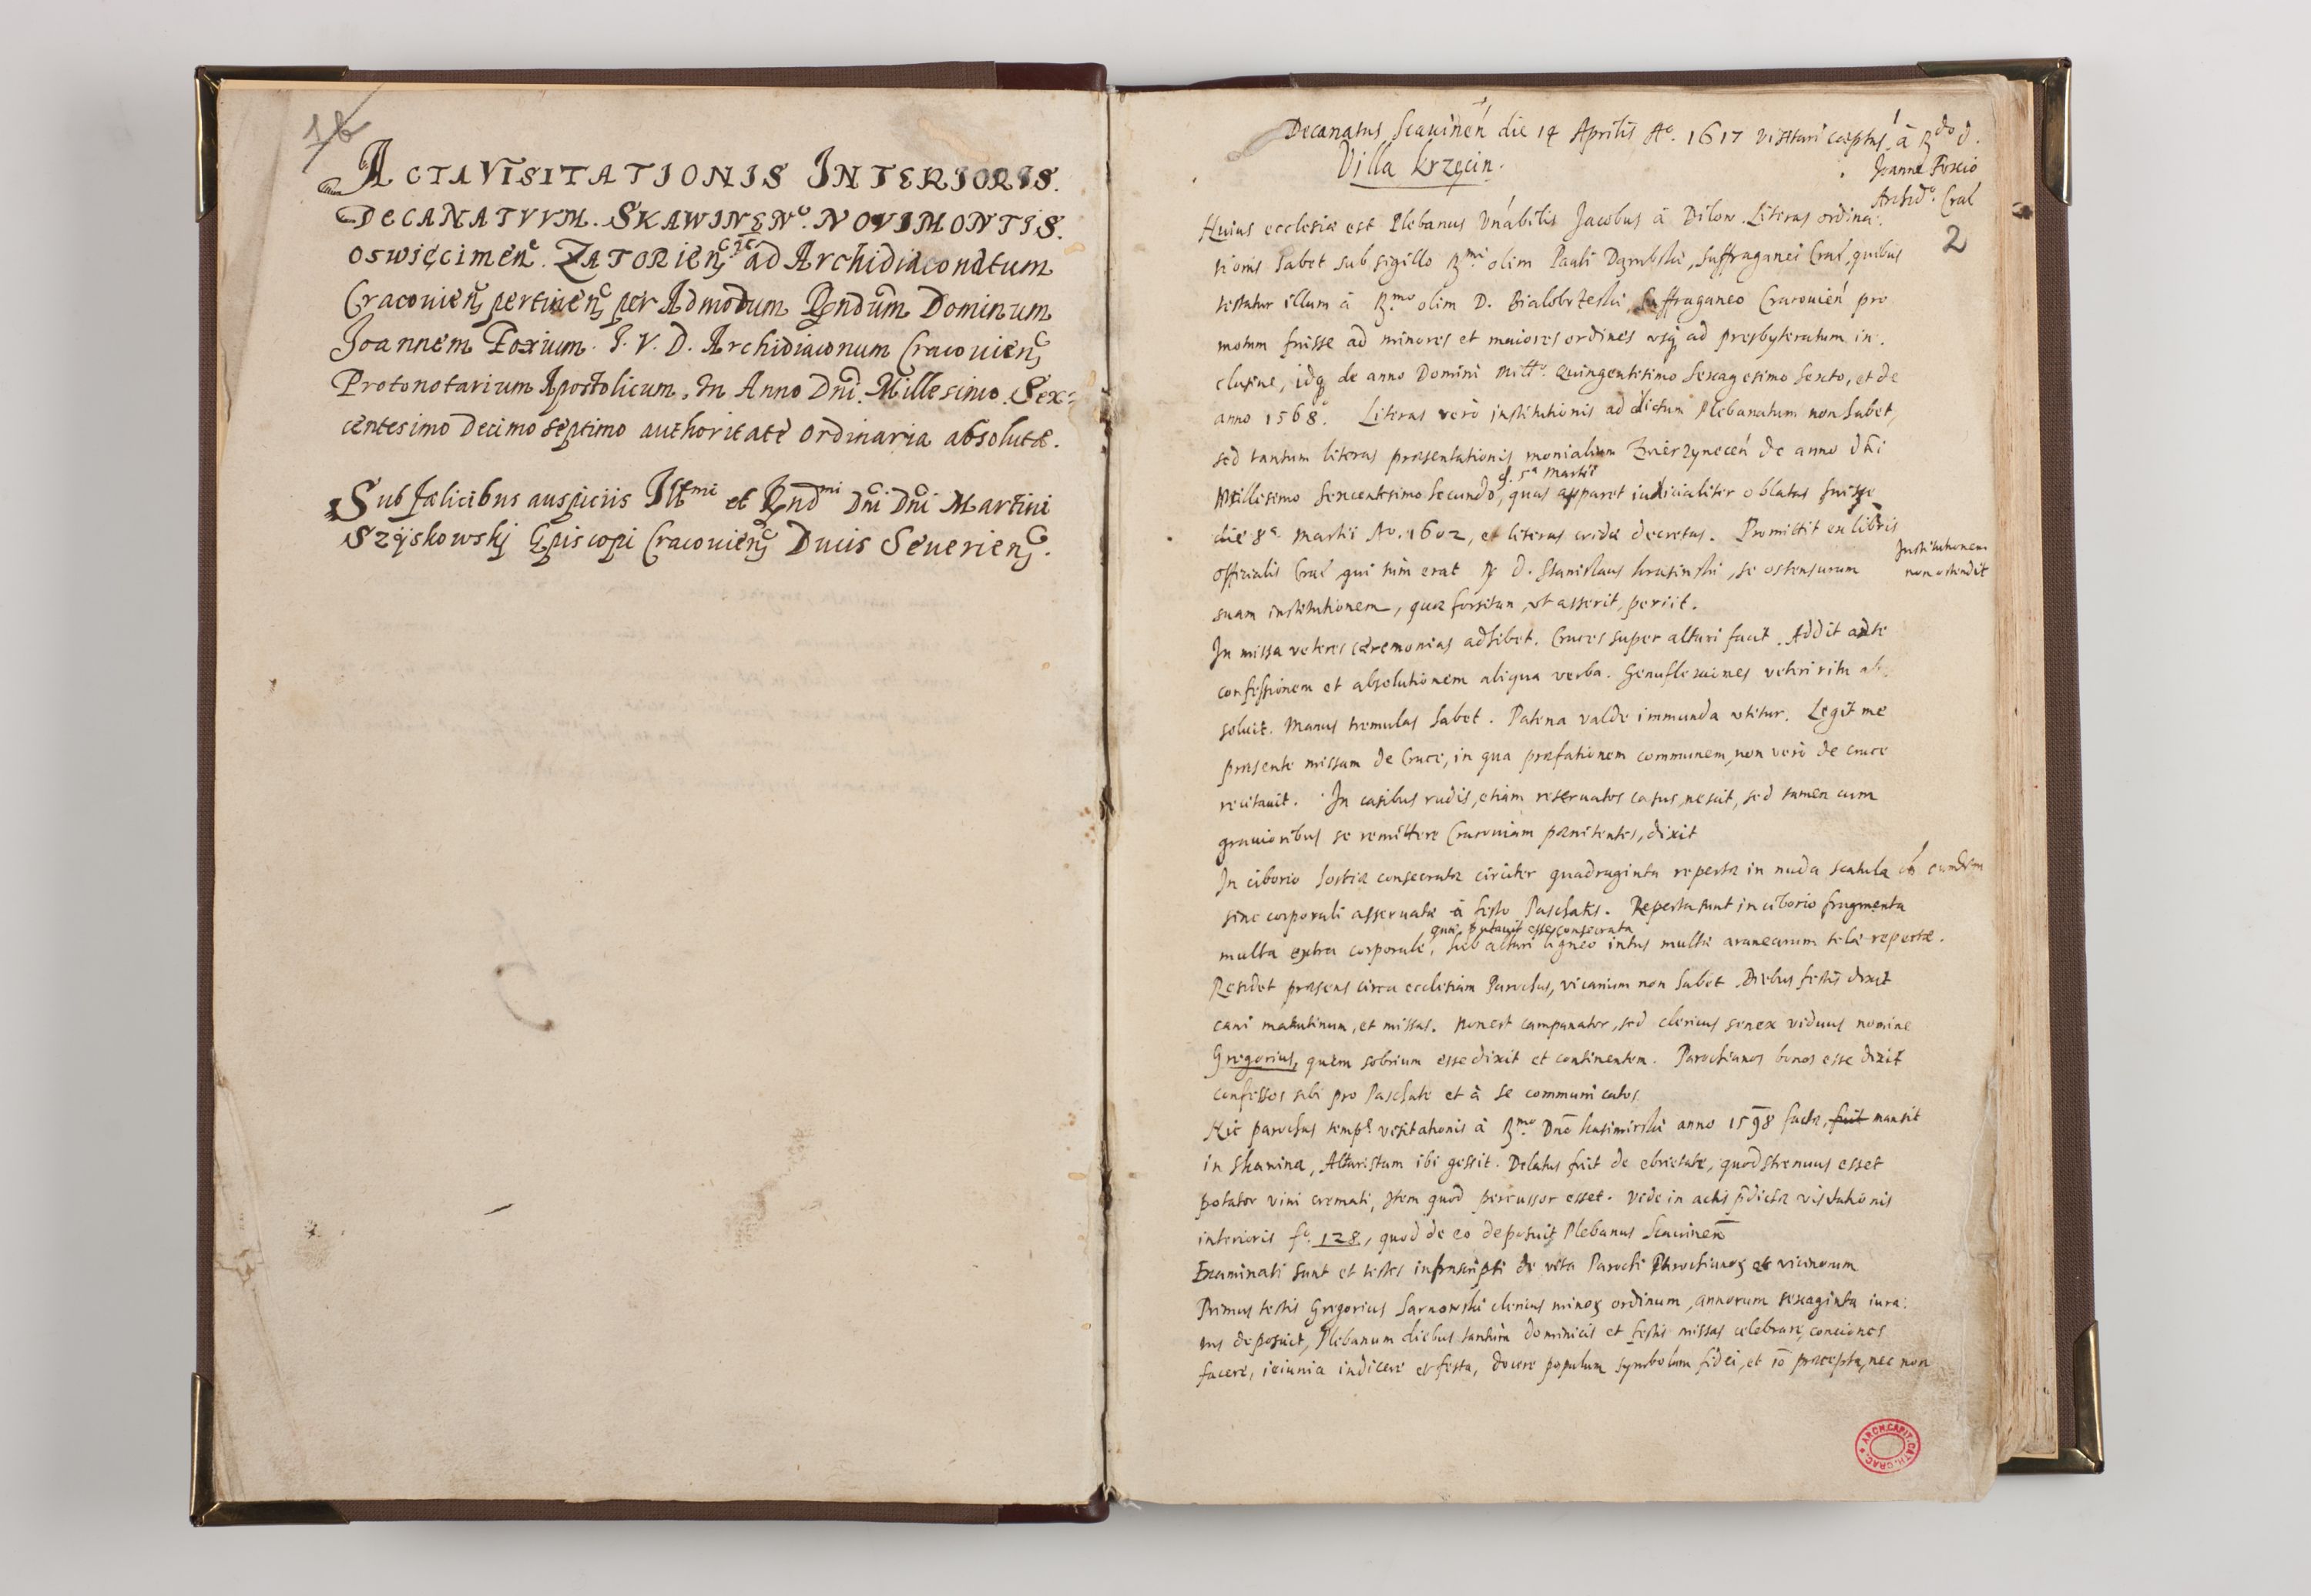 1b
ACTA VISITATIONIS INTERIORIS.
DECANATVVM. SKAWINEN. NOVIMONTIS.
OSWIĘCIMEN. ZATORIEN. etc. ad Archidiaconatum
Cracouien pertinen per Admodum Rndum Dominum
Joannem Foxium. I. V. D. Archidiaconum Cracouien
Protonotarium Apostolicum, In Anno Dni. Millesimo. Sex=
centesimo Decimo septimo authoritate ordinaria absolutæ.
Sub fælicibus auspiciis Illmi et Rndmi Dni Dni Martini
Szÿskowskj Episcopi Cracouien Ducis Seuerien.
Decanatus Scauinen die 14 Aprilis Ao. 1617 visitari cæptus à Rdo D.
Joanne Foxio
Archid. Crac
Villa Krzęcin.
2
Huius ecclesiæ est Plebanus Vnabilis Jacobus à Dilow. Literas ordina:
tionis habet sub sigillo Rmi olim Pauli Dąmbski, suffraganei Crac, quibus
testatur illum à Rmo olim D. Bialobrzeski suffraganeo Cracouien pro
motum fuisse ad minores et maiores ordines vsq ad presbyteratum in:
clusiue, idq de anno Domini Mill. Quingentesimo Sexagesimo Sexto, et de
anno 1568. Literas verò institutionis ad dictum Plebanatum non habet,
sed tantum literas præsentationis monialium Zwierzynecen de anno dni
d. 5a Martii
Millesimo Sexcentesimo Secundo, quas apparet iudicialiter oblatas fuisse
die 8a Martii Ao. 1602, et literas cridæ decretas. Promittit ex libris
Institutionem
non ostendit
Offizialis Crac qui tum erat R D. Stanislaus Krasinski, se ostensurum
suam institutionem, quæ forsitan, vt asserit, periit.
In missa veteres cæremonias adhibet. Cruces super altari facit. Addit ante
confessionem et absolutionem aliqua verba. Genuflexiones veteri ritu ab:
soluit. Manus tremulas habet. Patena valde immunda vtitur. Legit me
præsente missam de Cruce, in qua præfationem communem, non verò de cruce
recitauit. In casibus rudis, etiam reseruatos casus nescit, sed tamen cum
grauioribus se remittere Cracouiam pænitentes, dixit
In ciborio hostiæ consecratæ circiter quadraginta repertæ in nuda scatula
sine corporali asseruatæ à festo Paschatis. Reperta sunt in ciborio fragmenta
quæ putauit esse consecrata
multa extra corporale, sub altari ligneo intus multæ aranearum telæ repertæ.
Residet præsens circa ecclesiam Parochus, vicarium non habet. Diebus festis dixit
cani matutinum, et missas. Non est campanator, sed clericus senex viduus nomine
Gregorius, quem sobrium esse dixit et continentem. Parochianos bonos esse dixit
confessos sibi pro Paschate et à se communicatos
Hic parochus tempe visitationis à Rmo Dno Kasimirski anno 1598 factæ, fuit mansit
in Skawina, Altaristam ibi gessit. Delatus fuit de ebrietate, quod strenuus esset
potator vini cremati, Item quod percussor esset. Vide in actis pdictæ visitationis
interioris fo. 128, quod de eo deposuit Plebanus Scauinen
Examinati sunt et testes infrascripti de vita Parochi Parochianoꝝ et vicinorum
Primus testis Gregorius Sarnowski clericus minoꝝ ordinum, annorum sexaginta iura:
tus deposuit, Plebanum diebus tantùm dominicis et festis missas celebrare, conciones
facere, ieiunia indicere et festa, docere populum symbolum fidei, et 10 præcepta, nec non
ARCH. CAPIT. CATH. CRAC.